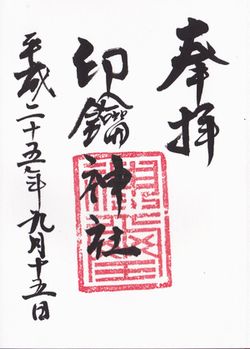 奉拝
印鑰神社
平成二十五年九月十五日